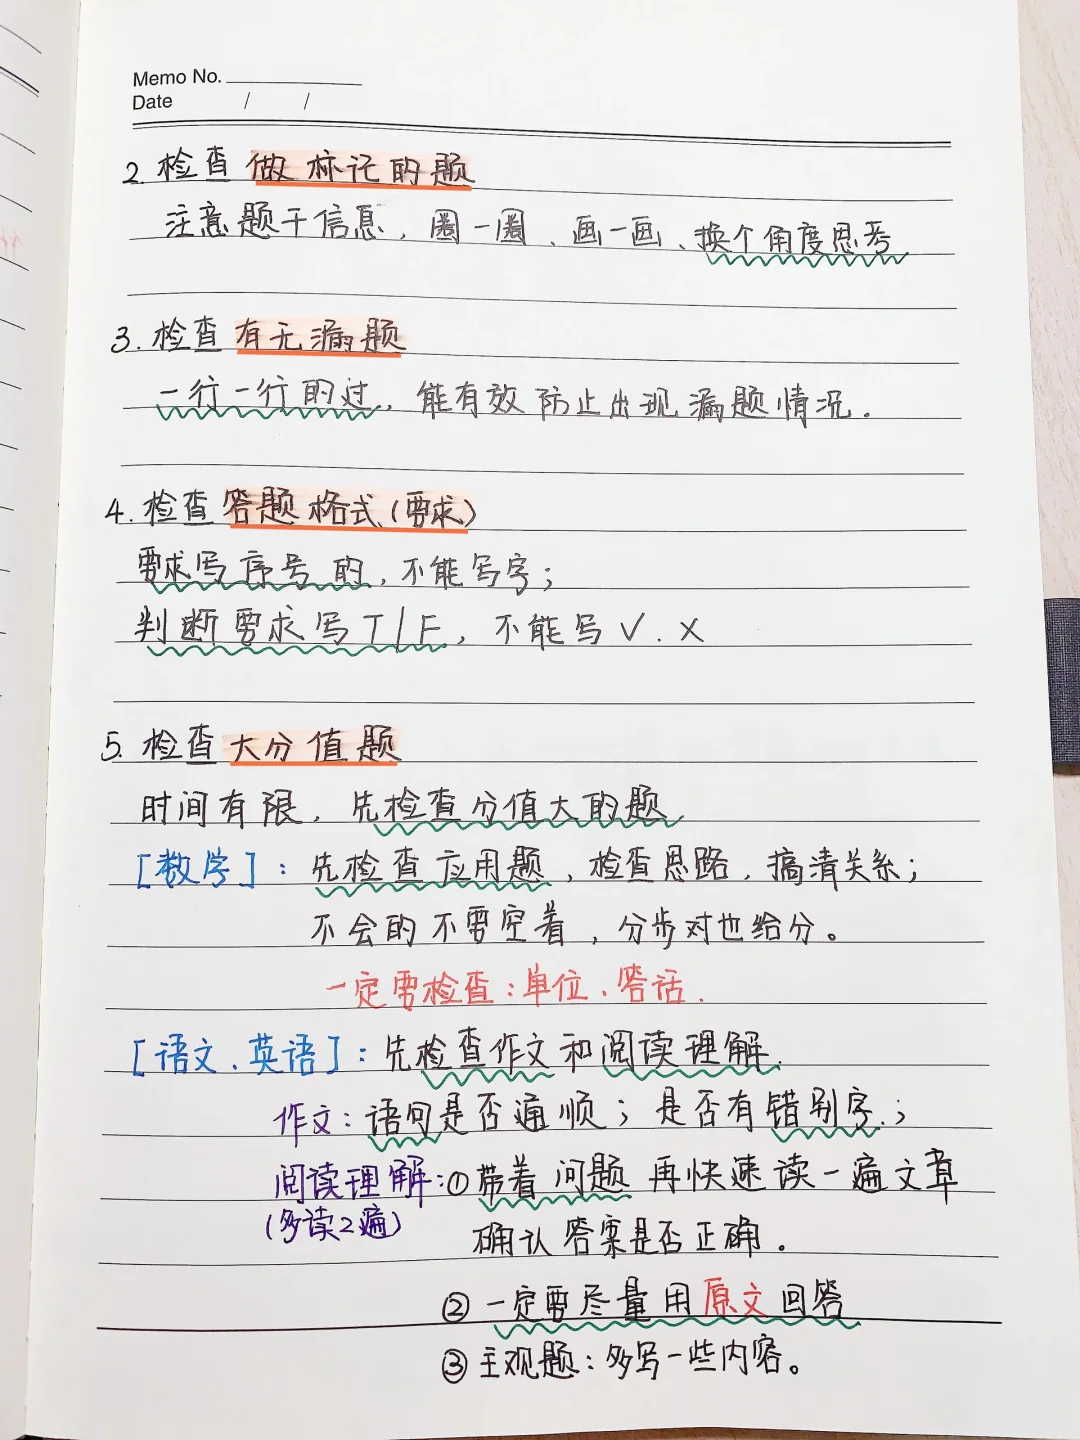 Memo No.
Date / /
2. 检查做标记的题
注意题干信息，圈一圈、画一画、换个角度思考
3. 检查有无漏题
一行一行的过，能有效防止出现漏题情况.
4. 检查答题格式(要求)
要求写序号的，不能写字；
判断要求写T/F，不能写√.×
5. 检查大分值题
时间有限，先检查分值大的题
[数学]：先检查应用题，检查思路，搞清关系；
不会的不要空着，分步对也给分。
一定要检查：单位、答话.
[语文、英语]：先检查作文和阅读理解.
作文：语句是否通顺；是否有错别字.；
阅读理解：①带着问题再快速读一遍文章
(多读2遍)
确认答案是否正确。
②一定要尽量用原文回答
③主观题：多写一些内容。